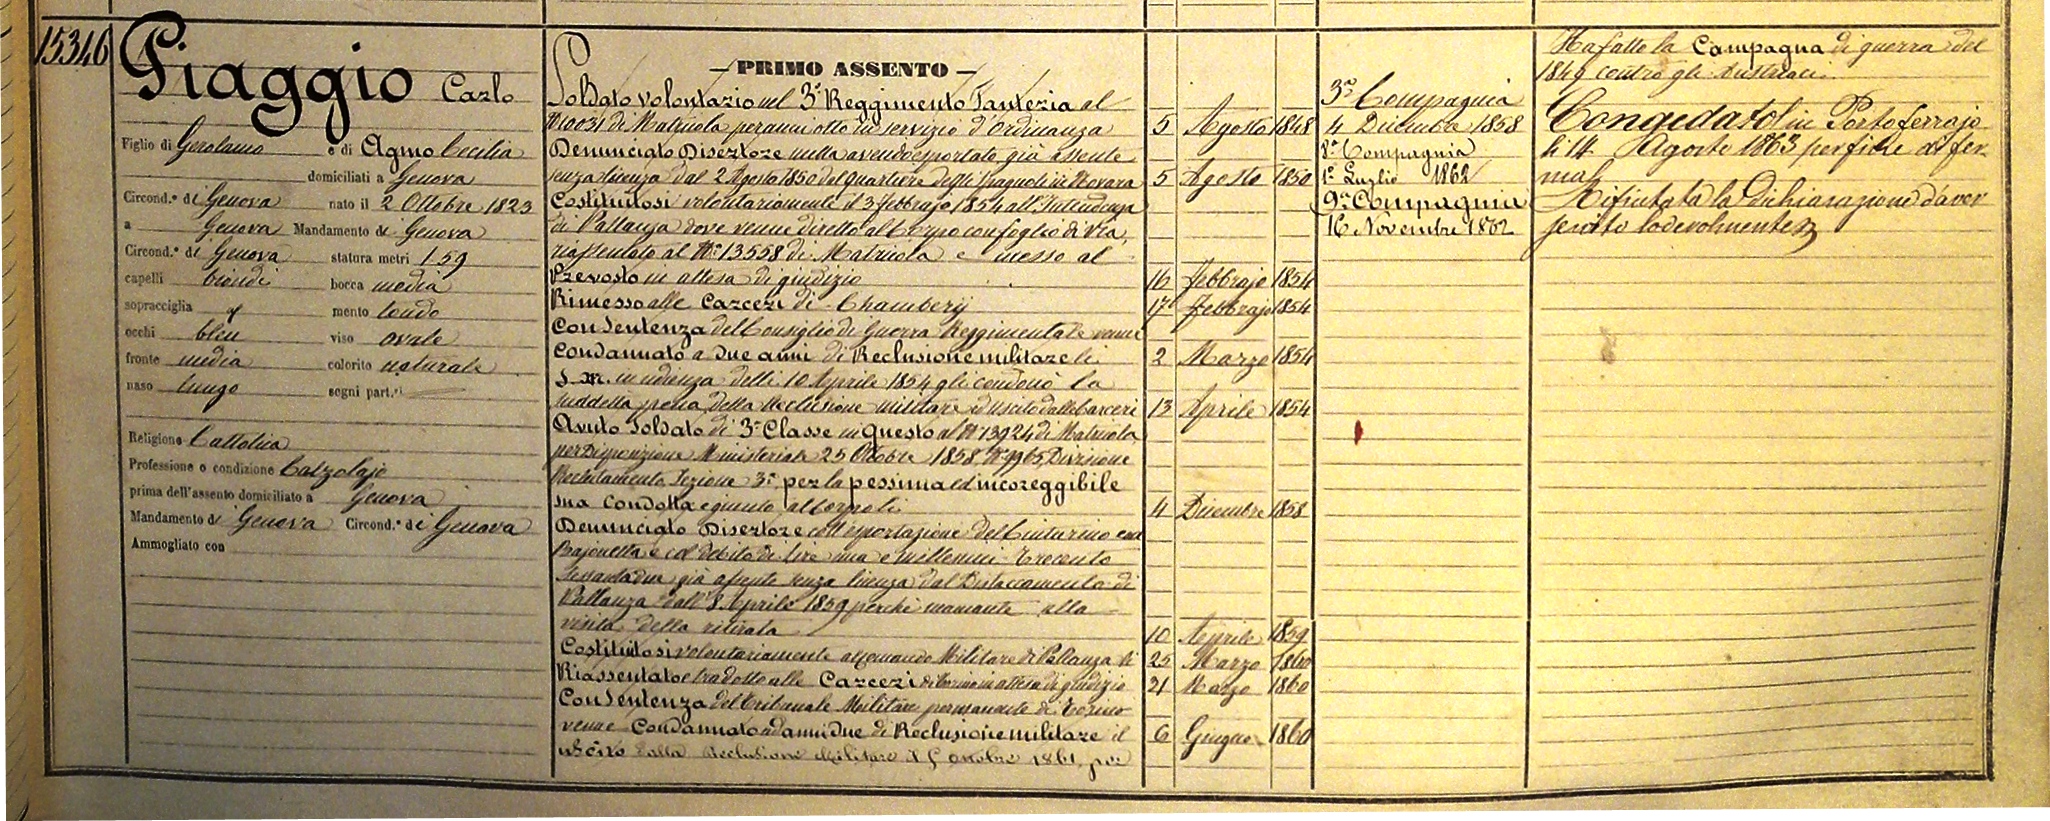 15346
Piaggio Carlo
Figlio di Gerolamo e di Agno Cecilia
domiciliati a Genova
Circond.º di Genova nato il 2 Ottobre 1823
a Genova Mandamento di Genova
Circond.º di Genova statura metri 1 59
capelli biondi bocca media
sopracciglia mento tondo
occhi bleu viso ovale
fronte media colorito naturale
naso lungo segni part.ri
Religione Cattolica
Professione o condizione Calzolajo
prima dell'assento domiciliato a Genova
Mandamento di Genova Circond.º di Genova
Ammogliato con
— PRIMO ASSENTO —
Soldato volontario nel 3º Reggimento Fanteria al
Nº 10031 di Matricola per anni otto in servizio d'Ordinanza 5 Agosto 1848
Denunciato Disertore nulla avendo esportato già assente
senza licenza dal 2 Agosto 1850 dal quartiere delli Spagnoli in Novara 5 Agosto 1850
Costituitosi volontariamente il 3 febbrajo 1854 all'Intendenza
di Pallanza dove venne diretto al Corpo con foglio di via,
riassentato al Nº 13558 di Matricola e messo al
Prevosto in attesa di giudizio 16 febbrajo 1854
Rimesso alle Carceri di Chambery 17 febbrajo 1854
Con Sentenza del Consiglio di Guerra Reggimentale venne
Condannato a due anni di Reclusione militare 2 Marzo 1854
S. M. in udienza delli 10 Aprile 1854 gli condonò la
suddetta pena della Reclusione militare ed uscito dalle Carceri 13 Aprile 1854
Avuto Soldato di 3ª Classe in questo al Nº 13924 di Matricola
per Disposizione Ministeriale 25 Ottobre 1858 Nº 9965, Divisione
Reclutamento Sezione 3ª per la pessima ed incoreggibile
sua condotta e giunto al Corpo li 4 Dicembre 1858
Denunciato Disertore coll'esportazione del Cinturino con
Bajonetta e col debito di Lire una e millesimi Trecento
Sessantadue già assente senza licenza dal Distaccamento di
Pallanza dall'8 Aprile 1859 perchè mancante alla
visita della ritirata 10 Aprile 1859
Costituitosi volontariamente al Comando Militare di Pallanza li 25 Marzo 1860
Riassentato e tradotto alle Carceri di Torino in attesa di giudizio 21 Marzo 1860
Con Sentenza del Tribunale Militare permanente di Torino
venne Condannato ad anni Due di Reclusione militare 6 Giugno 1860
uscito dalla Reclusione Militare il ottobre 1861, per
3ª Compagnia
4 Dicembre 1858
8ª Compagnia
1º Luglio 1862
9ª Compagnia
16 Novembre 1862
Ha fatto la Campagna di guerra del
1849 contro gli Austriaci.
Congedatosi in Portoferrajo
li 14 Agosto 1863 per fine di fer-
ma
Rifiutata la Dichiarazione d'aver
servito lodevolmente